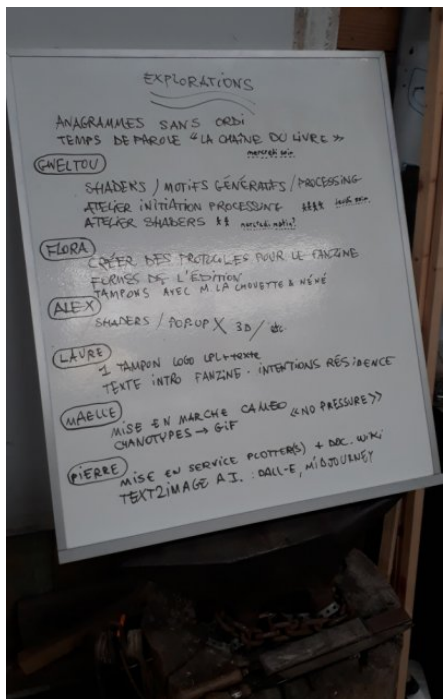 EXPLORATIONS
ANAGRAMMES SANS ORDI
TEMPS DE PAROLE "LA CHAÎNE DU LIVRE"
mercredi soir
GWELTOU
SHADERS / MOTIFS GÉNÉRATIFS / PROCESSING
ATELIER INITIATION PROCESSING **** jeudi soir
ATELIER SHADERS ** mercredi matin?
FLORA
CRÉER DES PROTOCOLES POUR LE FANZINE
FORMES DE L'ÉDITION
TAMPONS AVEC M LA CHOUETTE & NÉNÉ
ALEX
SHADERS / POP.UP X 3D / etc.
LAURE
1 TAMPON LOGO LPL + texte
TEXTE INTRO FANZINE · INTENTIONS RÉSIDENCE
MAELLE
MISE EN MARCHE CAMEO «NO PRESSURE»
CYANOTYPES → GIF
PIERRE
MISE EN SERVICE PLOTTER(S) + DOC. WIKI
TEXT2IMAGE A.I. : DALL-E, MIDJOURNEY